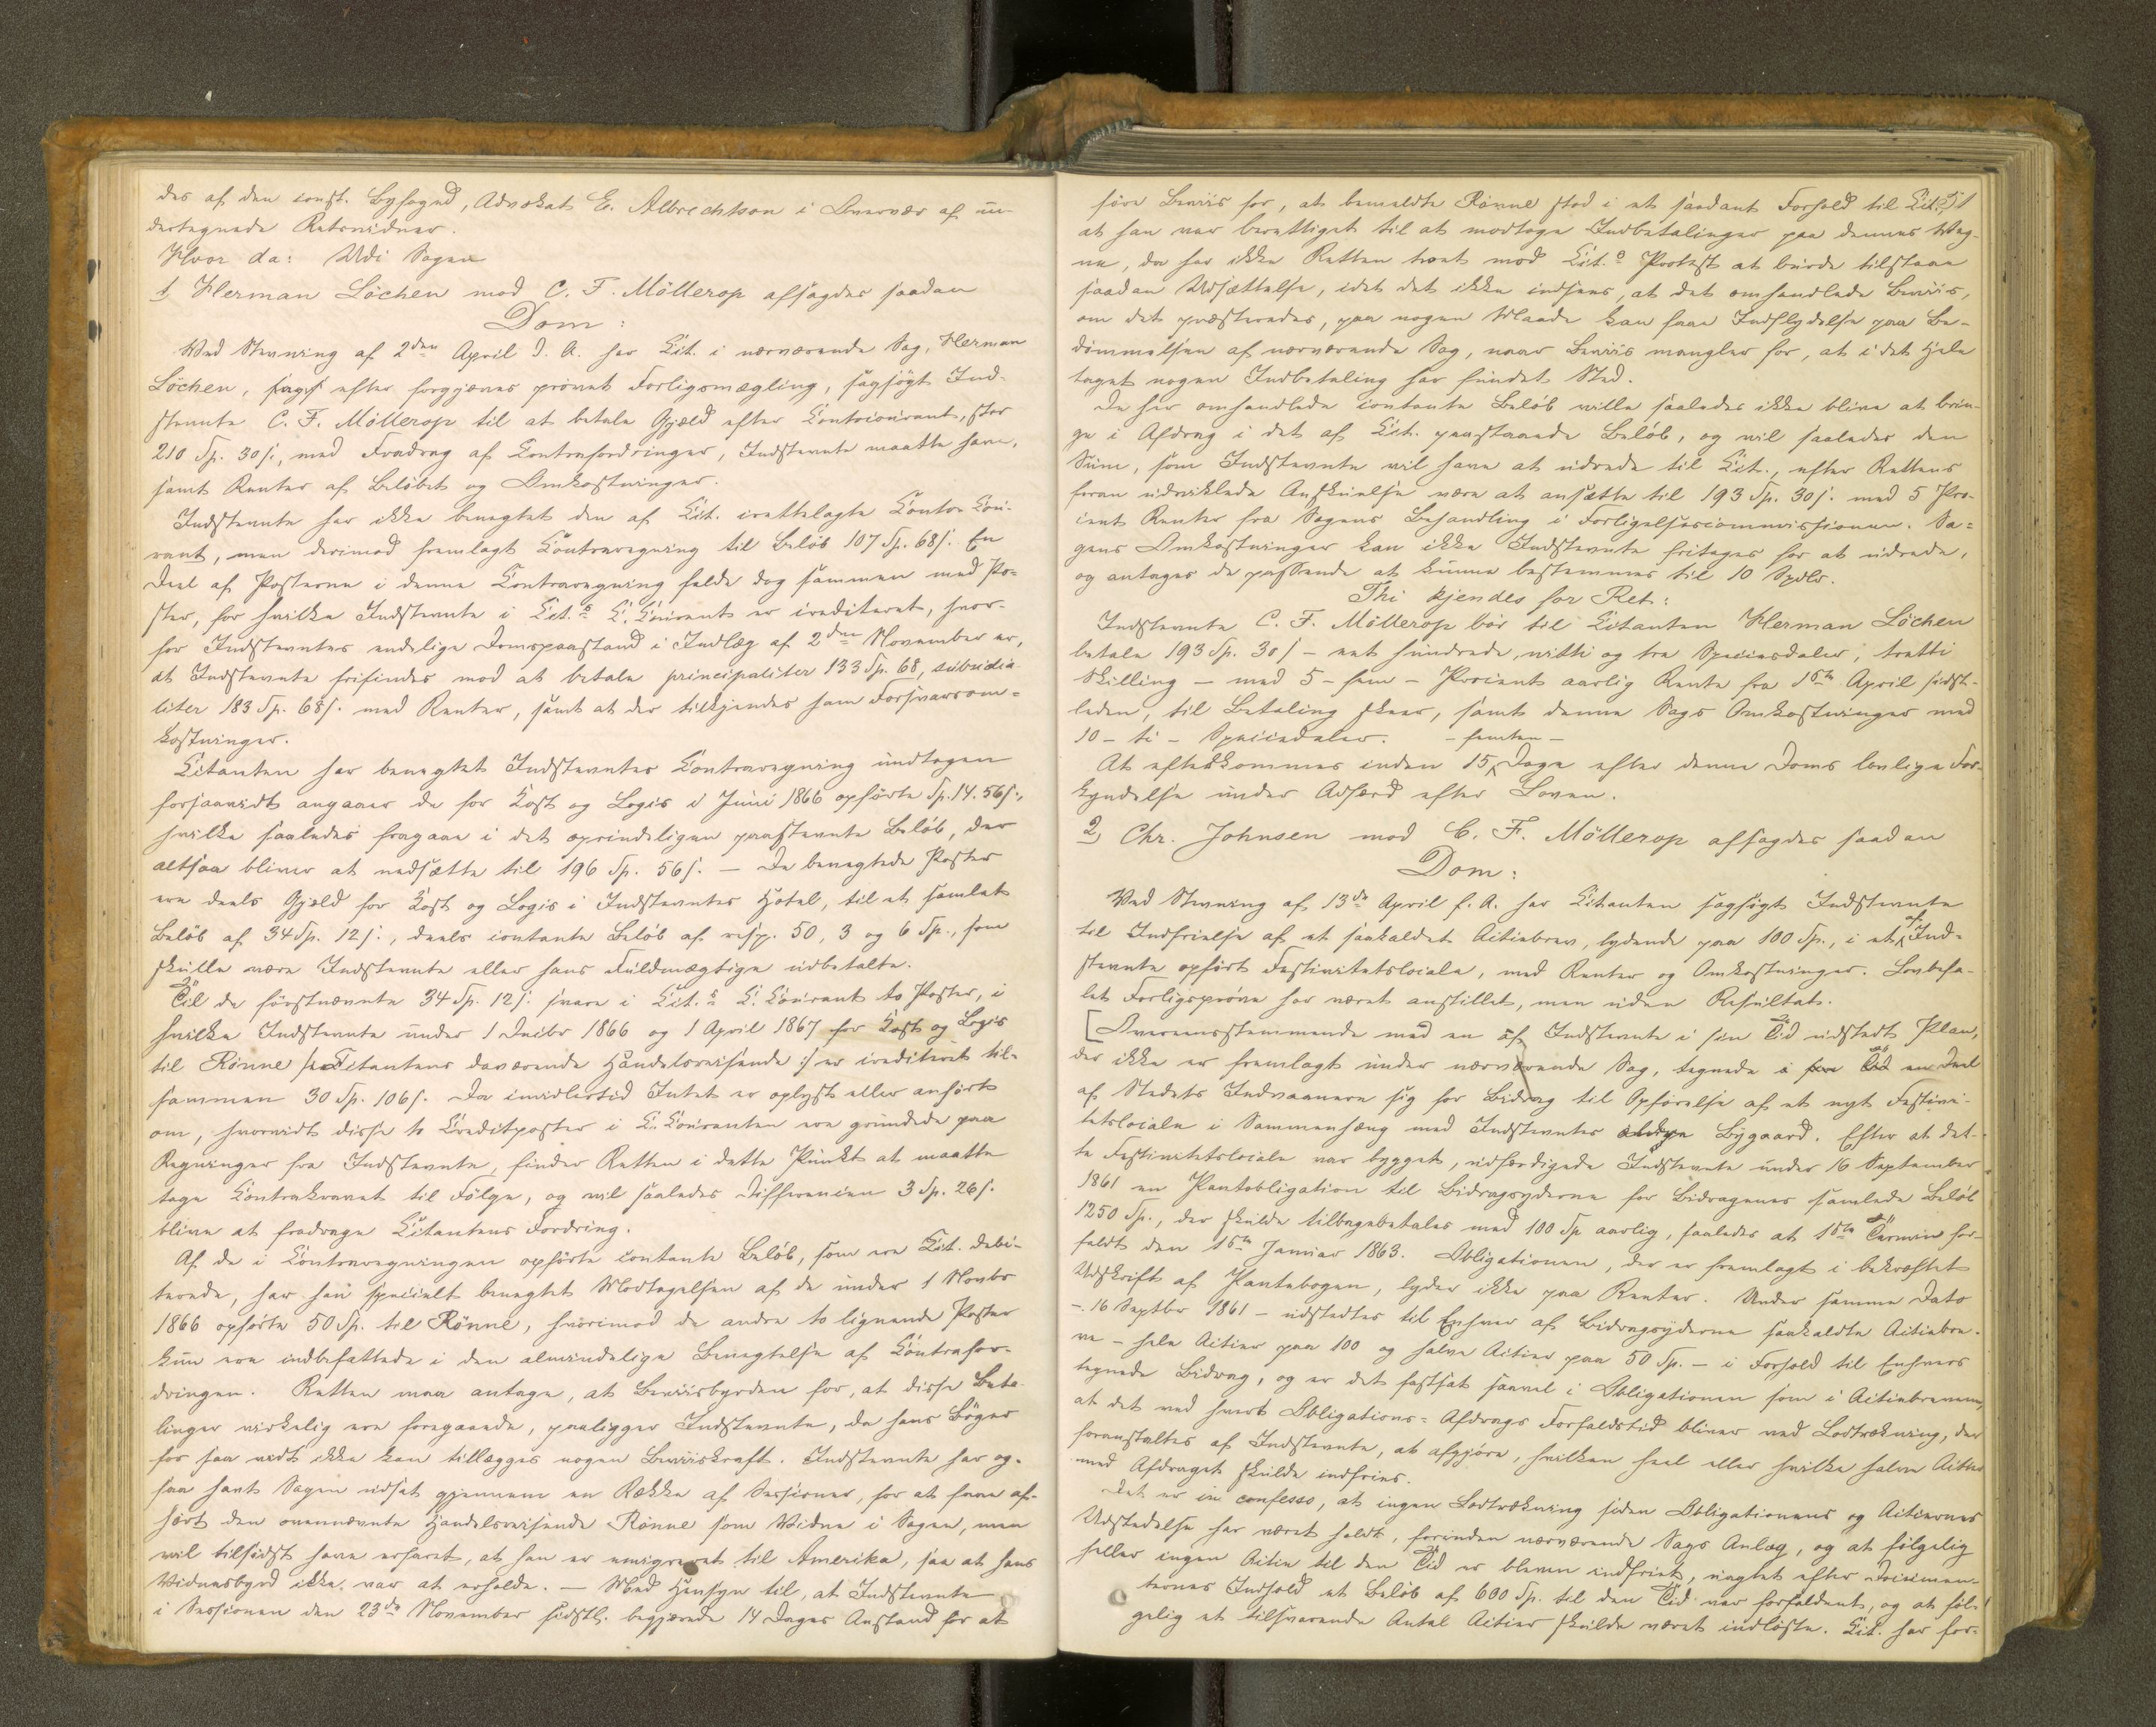 des af den const. Byfoged, Advokat E. Albrechtson i Overvær af un-
dertegnede Retsvidner.
Hvor da: Udi Sagen
1 Herman Löchen mod C. F. Möllerop afsagdes saadan
Dom:
Ved Stevning af 2den April d. A. har Cit. i nærværende Sag, Herman
Löchen, efter forgjæves prøvet Forligsmægling, sagsögt Ind-
stevnte C. F. Möllerop til at betale Gjæld efter Contocourant, stor
210 Sp. 30 s., med Fradrag af Contrafordringer, Indstevnte maatte have,
samt Renter af Beløbet og Omkostninger.
Indstevnte har ikke benegtet den af Cit. irettelagte Conto Cou-
rant, men derimod fremlagt Contraregning til Beløb 107 Sp. 68 s. En
Deel af Posterne i denne Contraregning falde dog sammen med Po-
ster, for hvilke Indstevnte i Cit.s C. Courant er crediteret, hvor-
for Indstevntes endelige Domspaastand i Indlæg af 2den November er,
at Indstevnte frifindes mod at betale principaliter 133 Sp. 68, subsidia-
liter 183 Sp. 68 s. med Renter, samt at der tilkjendes ham Forsvarsom-
kostninger.
Citanten har benegtet Indstevntes Contraregning undtagen
forsaavidt angaaer de for Kost og Logis i Juni 1866 opförte Sp. 14. 56 s.,
hvilke saaledes fragaae i det oprindeligen paastevnte Beløb, der
altsaa bliver at nedsætte til 196 Sp. 56 s. — De benegtede Poster
ere deels Gjæld for Kost og Logis i Indstevntes Hotel, til et samlet
Beløb af 34 Sp. 12 s., deels contante Beløb af resp. 50, 3 og 6 Sp., som
skulle være Indstevnte eller hans Fuldmægtige udbetalte.
Til de förstnævnte 34 Sp. 12 s. svare i Cit.s C. Courant to Poster, i
hvilke Indstevnte under 1 Decbr 1866 og 1 April 1867 for Kost og Logis
til Rönne /: Citantens daværende Handelsreisende :/ er crediteret til-
sammen 30 Sp. 106 s. Da imidlertid Intet er oplyst eller anført
om, hvorvidt disse to Creditposter i C. Couranten ere grundede paa
Regninger fra Indstevnte, finder Retten i dette Punkt at maatte
tage Contrakravet til Følge, og vil saaledes Differencen 3 Sp. 26 s.
blive at fradrage Citantens Fordring.
Af de i Contraregningen opförte contante Beløb, som ere Cit. debi-
terede, har han specielt benegtet Modtagelsen af de under 1 Novbr
1866 opførte 50 Sp. til Rönne, hvorimod de andre to lignende Poster
kun ere indbefattede i den almindelige Benegtelse af Contrafor-
dringen. Retten maa antage, at Beviisbyrden for, at disse Beta-
linger virkelig ere foregaaede, paaligger Indstevnte, da hans Böger
for saa vidt ikke kan tillægges nogen Beviiskraft. Indstevnte har og-
saa havt Sagen udsat gjennem en Række af Sessioner, for at faae af-
hørt den ovennævnte Handelsreisende Rönne som Vidne i Sagen, men
vil tilsidst have erfaret, at han er emigreret til Amerika, saa at hans
Vidnesbyrd ikke var at erholde. — Med Hensyn til, at Indstevnte
i Sessionen den 23de November sidstl. begjærede 14 Dages Anstand for at
føre Beviis for, at bemeldte Rönne stod i et saadant Forhold til Cit.,
at han var berettiget til at modtage Indbetalinger paa dennes Veg-
ne, da har ikke Retten troet mod Cit.s Protest at burde tilstaae
saadan Udsættelse, idet det ikke indsees, at det omhandlede Beviis,
om det præsteredes, paa nogen Maade kan faae Indflydelse paa Be-
dömmelsen af nærværende Sag, naar Beviis mangler for, at i det Hele
taget nogen Indbetaling har fundet Sted.
De her omhandlede contante Beløb ville saaledes ikke blive at brin-
ge i Afdrag i det af Cit. paastaaede Beløb, og vil saaledes den
Sum, som Indstevnte vil have at udrede til Cit., efter Rettens
foran udviklede Anskuelse være at ansætte til 193 Sp. 30 s. med 5 Pro-
cent Renter fra Sagens Behandling i Forligelsescommissionen. Sa-
gens Omkostninger kan ikke Indstevnte fritages for at udrede,
og antages de passende at kunne bestemmes til 10 Spdlr.
Thi kjendes for Ret:
Indstevnte C. F. Möllerop bör til Citanten Herman Löchen
betale 193 Sp. 30 s – eet hundrede, nitti og tre Speciesdaler, tretti
Skilling – med 5 – fem – Procents aarlig Rente fra 15de April sidst-
leden, til Betaling skeer, samt denne Sags Omkostninger med
10 – ti – Speciedaler. – femten –
At efterkommes inden 15 Dage efter denne Doms lovlige For-
kyndelse under Adfærd efter Loven.
2 Chr. Johnsen mod C. F. Möllerop afsagdes saadan
Dom:
Ved Stevning af 13de April f. A. har Citanten sagsögt Indstevnte
til Indfrielse af et saakaldet Actiebrev, lydende paa 100 Sp., i et af Ind-
stevnte opfört Festivitetslocale, med Renter og Omkostninger. Lovbefa-
let Forligsprøve har været anstillet, men uden Resultat.
[Overeensstemmende med en af Indstevnte i sin Tid udstedt Plan,
der ikke er fremlagt under nærværende Sag, tegnede en Deel
af Stedets Indvaanere sig for Bidrag til Opførelse af et nyt Festivi-
tetslocale i Sammenhæng med Indstevntes Bygaard. Efter at det-
te Festivitetslocale var bygget, udfærdigede Indstevnte under 16 September
1861 en Pantobligation til Bidragsyderne for Bidragenes samlede Beløb
1250 Sp., der skulde tilbagebetales med 100 Sp aarlig, saaledes at 1ste Termin for-
faldt den 15de Januar 1863. Obligationen, der er fremlagt i bekræftet
Udskrift af Pantebogen, lyder ikke paa Renter. Under samme Dato
– 16 Septbr 1861 – udstedtes til Enhver af Bidragsyderne saakaldte Actiebre-
ve – hele Actier paa 100 og halve Actier paa 50 Sp. – i Forhold til Enhvers
tegnede Bidrag, og er det fastsat saavel i Obligationen som i Actiebrevene,
at det ved hvert Obligations-Afdrags Forfaldstid bliver ved Lodtrækning, der
foranstaltes af Indstevnte, at afgjøre, hvilken heel eller hvilke halve Actier
med Afdraget skulde indfries.
Det er in confesso, at ingen Lodtrækning siden Obligationens og Actiernes
Udstedelse har været holdt, forinden nærværende Sags Anlæg, og at følgelig
heller ingen Actie til den Tid er bleven indfriet, uagtet efter Documen-
ternes Indhold et Beløb af 600 Sp. til den Tid var forfaldent, og at føl-
gelig et tilsvarende Antal Actier skulde været indløste. Cit. har for-